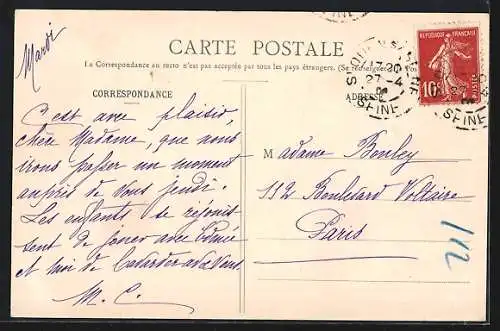 Mardi
CARTE POSTALE
La Correspondance au recto n'est pas acceptée par tous les pays étrangers. (Se renseigner
CORRESPONDANCE
ADRESSE
REPUBLIQUE FRANÇAISE
10c
POSTES
17 30
27-4
SEINE
SEINE
C'est avec plaisir,
chère Madame, que nous
irons passer un moment
auprès de vous jeudi.
Les enfants se réjouis
sent de jouer avec
et moi de bavarder avec vous.
M. C.
Madame Bouley
112 Boulevard Voltaire
Paris
112